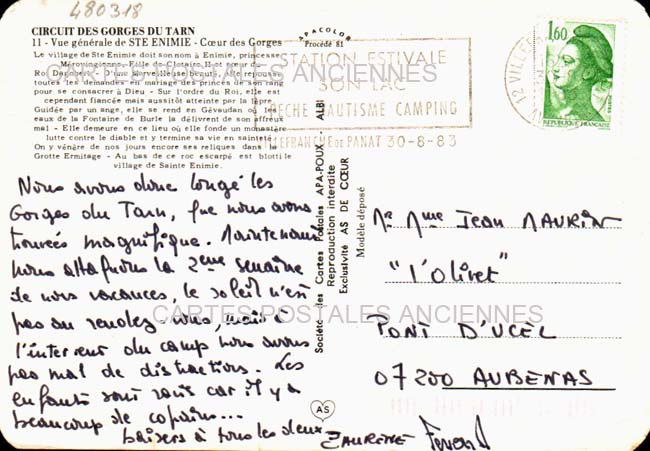 480318
CIRCUIT DES GORGES DU TARN
11 - Vue générale de STE ENIMIE - Cœur des Gorges
Le village de Ste Enimie doit son nom à Enimie, princesse
Mérovingienne, Fille de Clotaire II et sœur du
Roi Dagobert - D'une merveilleuse beauté, elle repousse
toutes les demandes en mariage des princes de son rang
pour se consacrer à Dieu - Sur l'ordre du Roi, elle est
cependant fiancée mais aussitôt atteinte par la lèpre
Guidée par un ange, elle se rend en Gévaudan où les
eaux de la Fontaine de Burle la délivrent de son affreux
mal - Elle demeure en ce lieu où elle fonde un monastère
lutte contre le diable et y termine sa vie en sainteté
On y vénère de nos jours encore ses reliques dans la
Grotte Ermitage - Au bas de ce roc escarpé est blotti le
village de Sainte Enimie.
APACOLOR
Procédé 81
STATION ESTIVALE
SON LAC
PECHE NAUTISME CAMPING
VILLEFRANCHE DE PANAT 30-8-83
1,60
REPUBLIQUE FRANÇAISE
CARTES POSTALES ANCIENNES
Nous avons donc longé les
Gorges du Tarn, que nous avons
trouvées magnifique. Maintenant
nous attaquons la 2ème semaine
de nos vacances, le soleil n'est
pas au rendez-vous, mais à
l'intérieur du camp nous avons
pas mal de distractions. Les
enfants sont ravis car il y a
beaucoup de copains...
baisers à tous les deux
Société des Cartes Postales APA-POUX - ALBI
Reproduction interdite
Exclusivité AS DE CŒUR
Modèle déposé
AS
Mr Mme Jean MAURIN
"l'Olivet"
PONT D'UCEL
07200 AUBENAS
CARTES POSTALES ANCIENNES